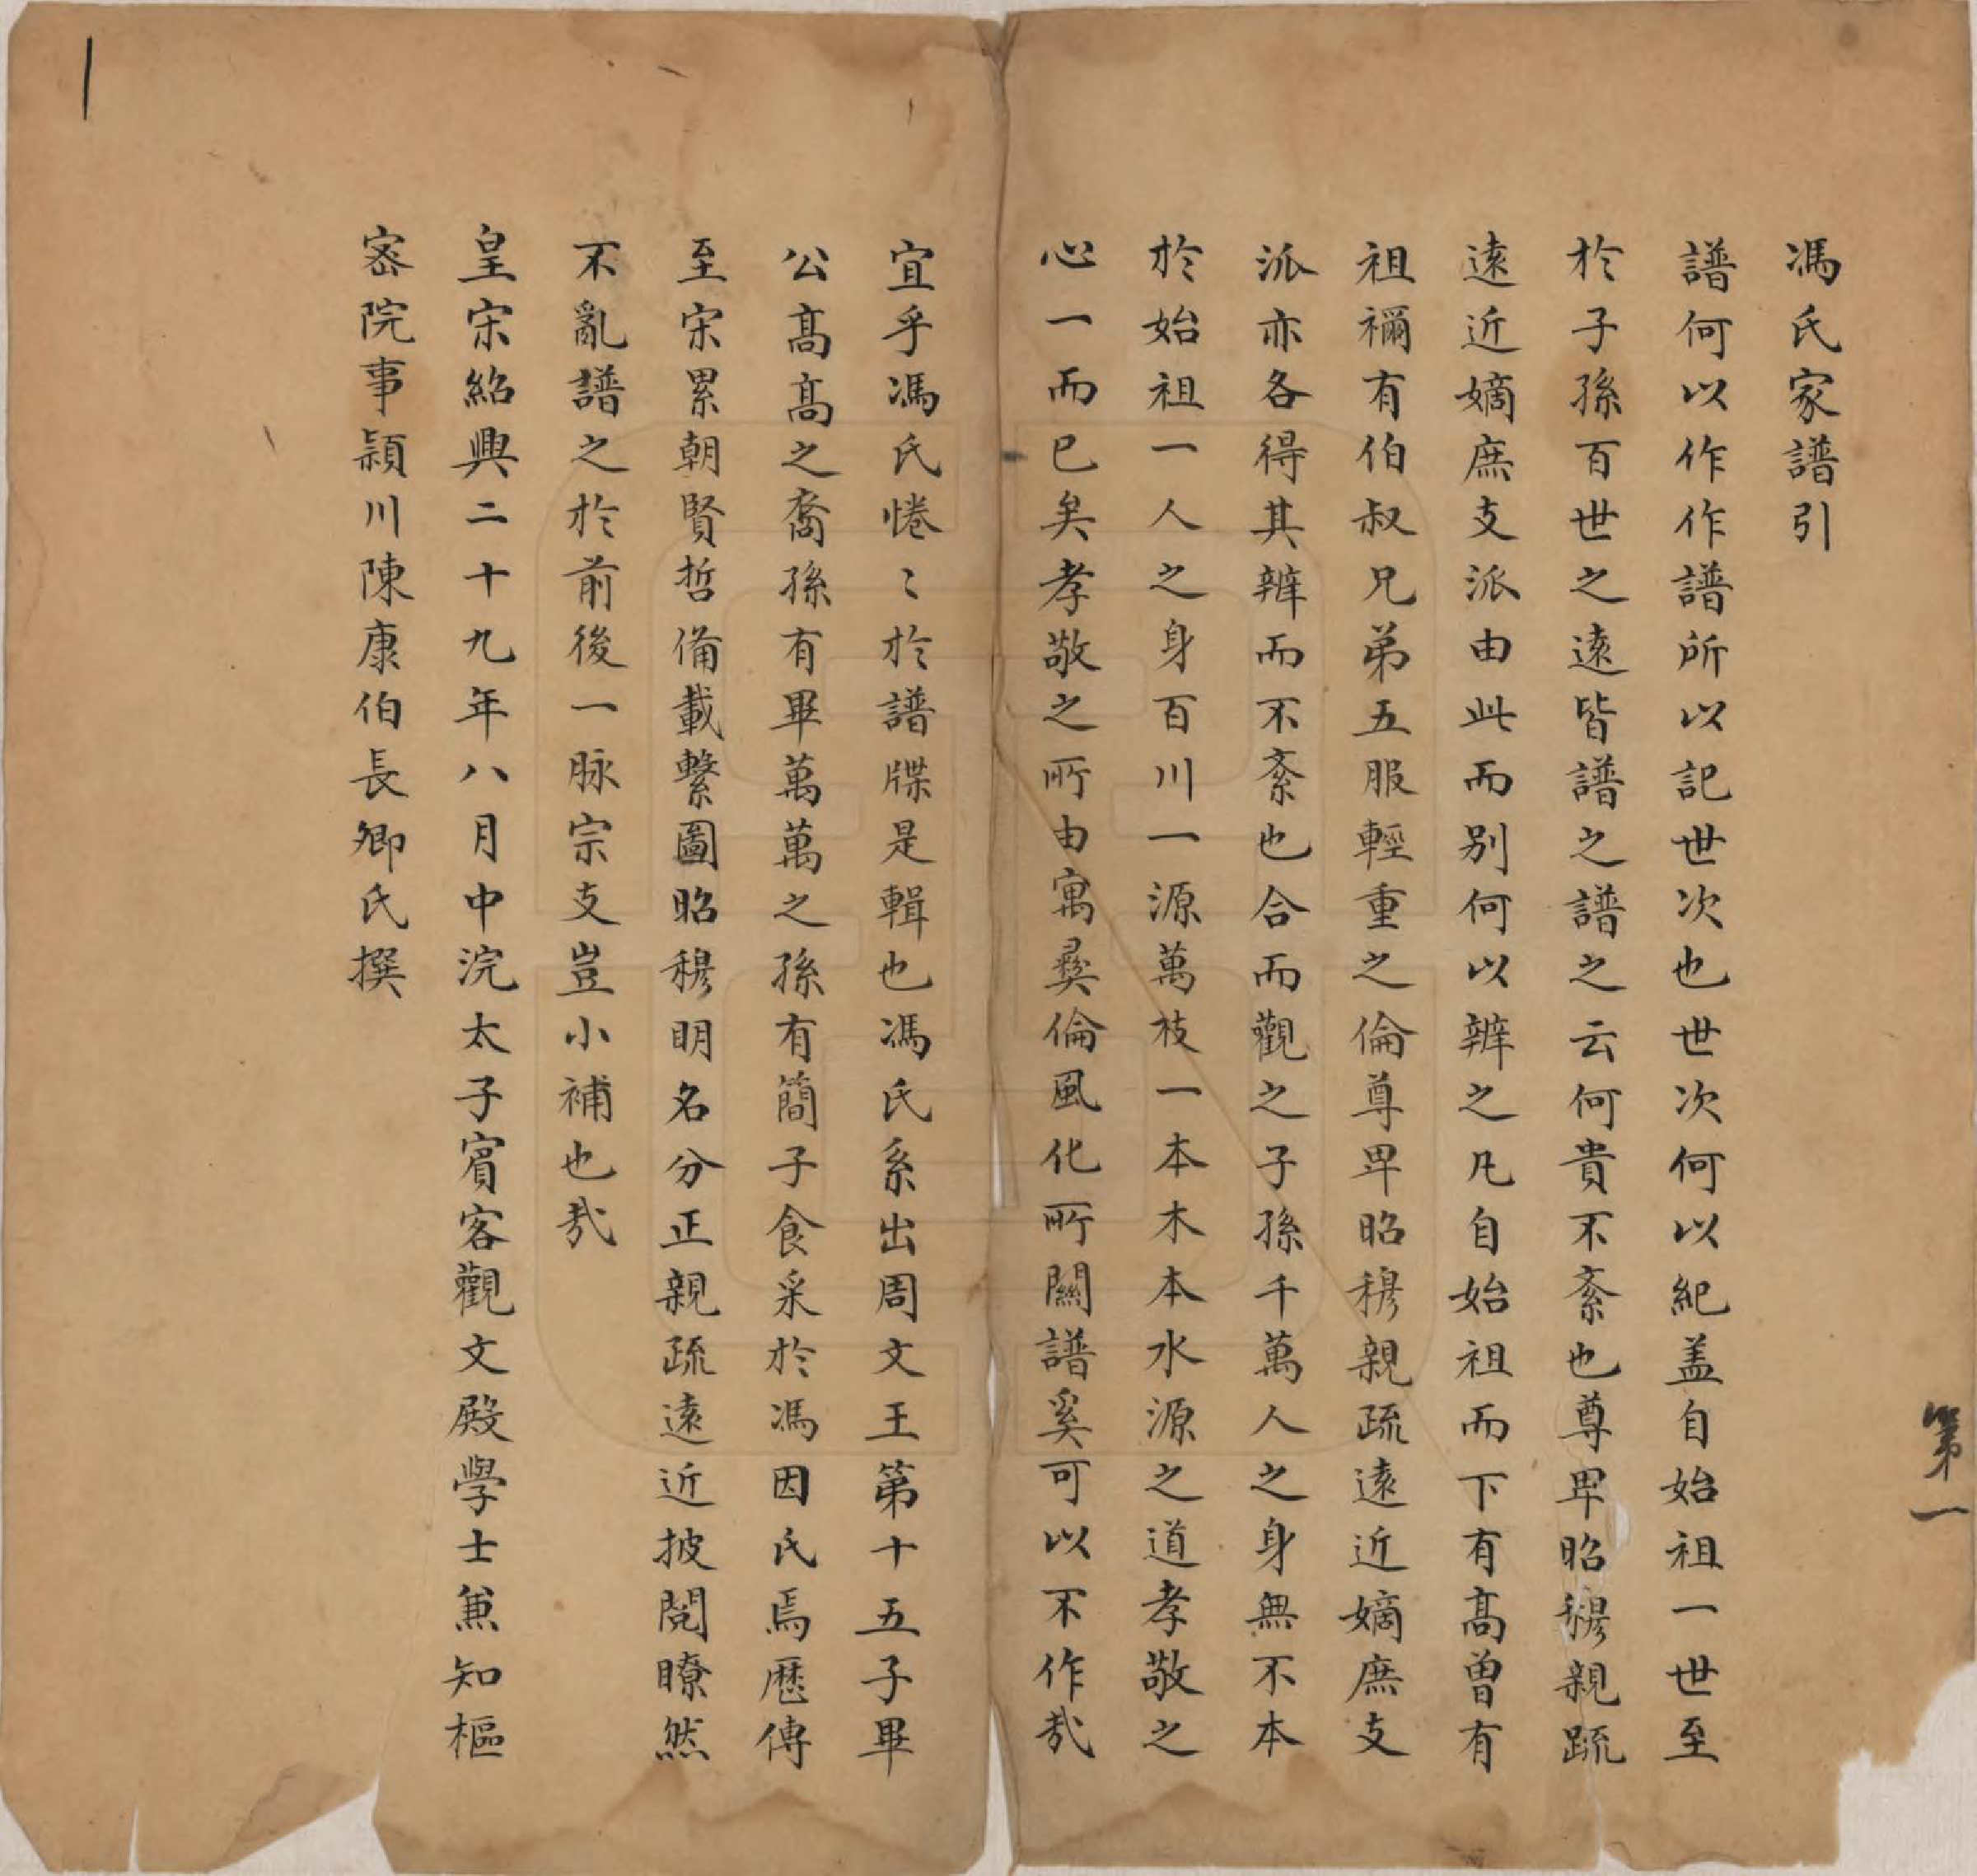 馮氏家譜引
譜何以作作譜所以記世次也世次何以紀盖自始祖一世至
於子孫百世之遠皆譜之譜之云何貴不紊也尊卑昭穆親疏
遠近嫡庶支派由此而别何以辨之凡自始祖而下有髙曾有
祖禰有伯叔兄弟五服輕重之倫尊卑昭穆親疏遠近嫡庶支
派亦各得其辨而不紊也合而觀之子孫千萬人之身無不本
於始祖一人之身百川一源萬枝一本木本水源之道孝敬之
心一而已矣孝敬之所由寓彛倫風化所關譜奚可以不作哉
宜乎馮氏惓〻於譜牒是輯也馮氏系出周文王第十五子畢
公髙髙之裔孫有畢萬萬之孫有簡子食采於馮因氏焉歷傳
至宋累朝賢哲備載繫圖昭穆明名分正親疏遠近披閱瞭然
不亂譜之於前後一脉宗支豈小補也哉
皇宋紹興二十九年八月中浣太子賓客觀文殿學士兼知樞
宻院事潁川陳康伯長卿氏撰
第一